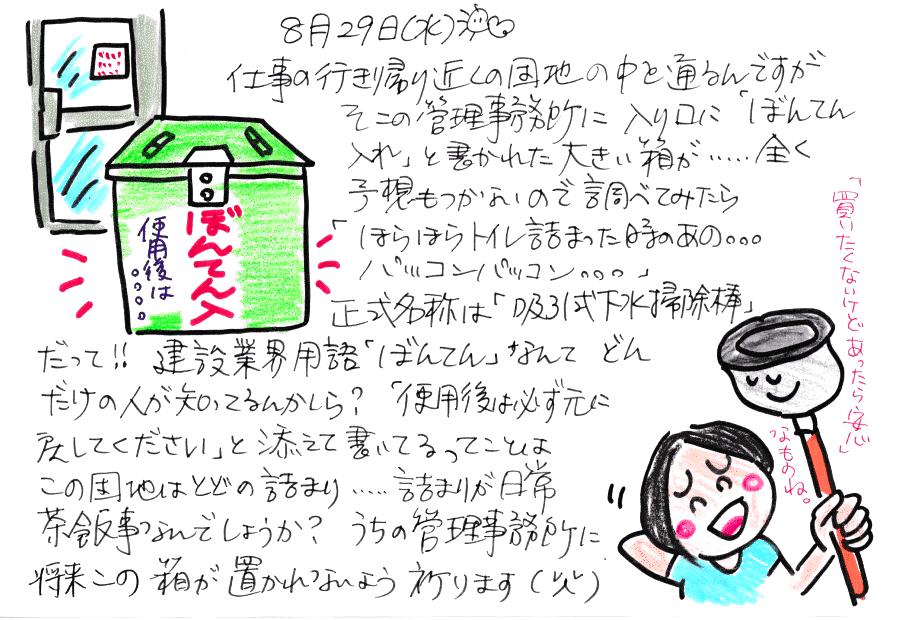 8月29日(水)
仕事の行き帰り近くの団地の中を通るんですが
そこの管理事務所に入り口に「ぼんてん
入れ」と書かれた大きい箱が……全く
予想もつかないので調べてみたら
「ほらほらトイレ詰まった時のあの。。。
バッコンバッコン。。。」
正式名称は「吸引式下水掃除棒」
だって!!建設業界用語「ぼんてん」なんてどん
だけの人が知ってるんかしら?「使用後は必ず元に
戻してください」と添えて書いてるってことは
この団地はとどの詰まり……詰まりが日常
茶飯事なんでしょうか?うちの管理事務所に
将来この箱が置かれないよう祈ります(笑)
ぼんてん入
使用後は
。。。。
「買いたくないけどあったら安心」
なものね。